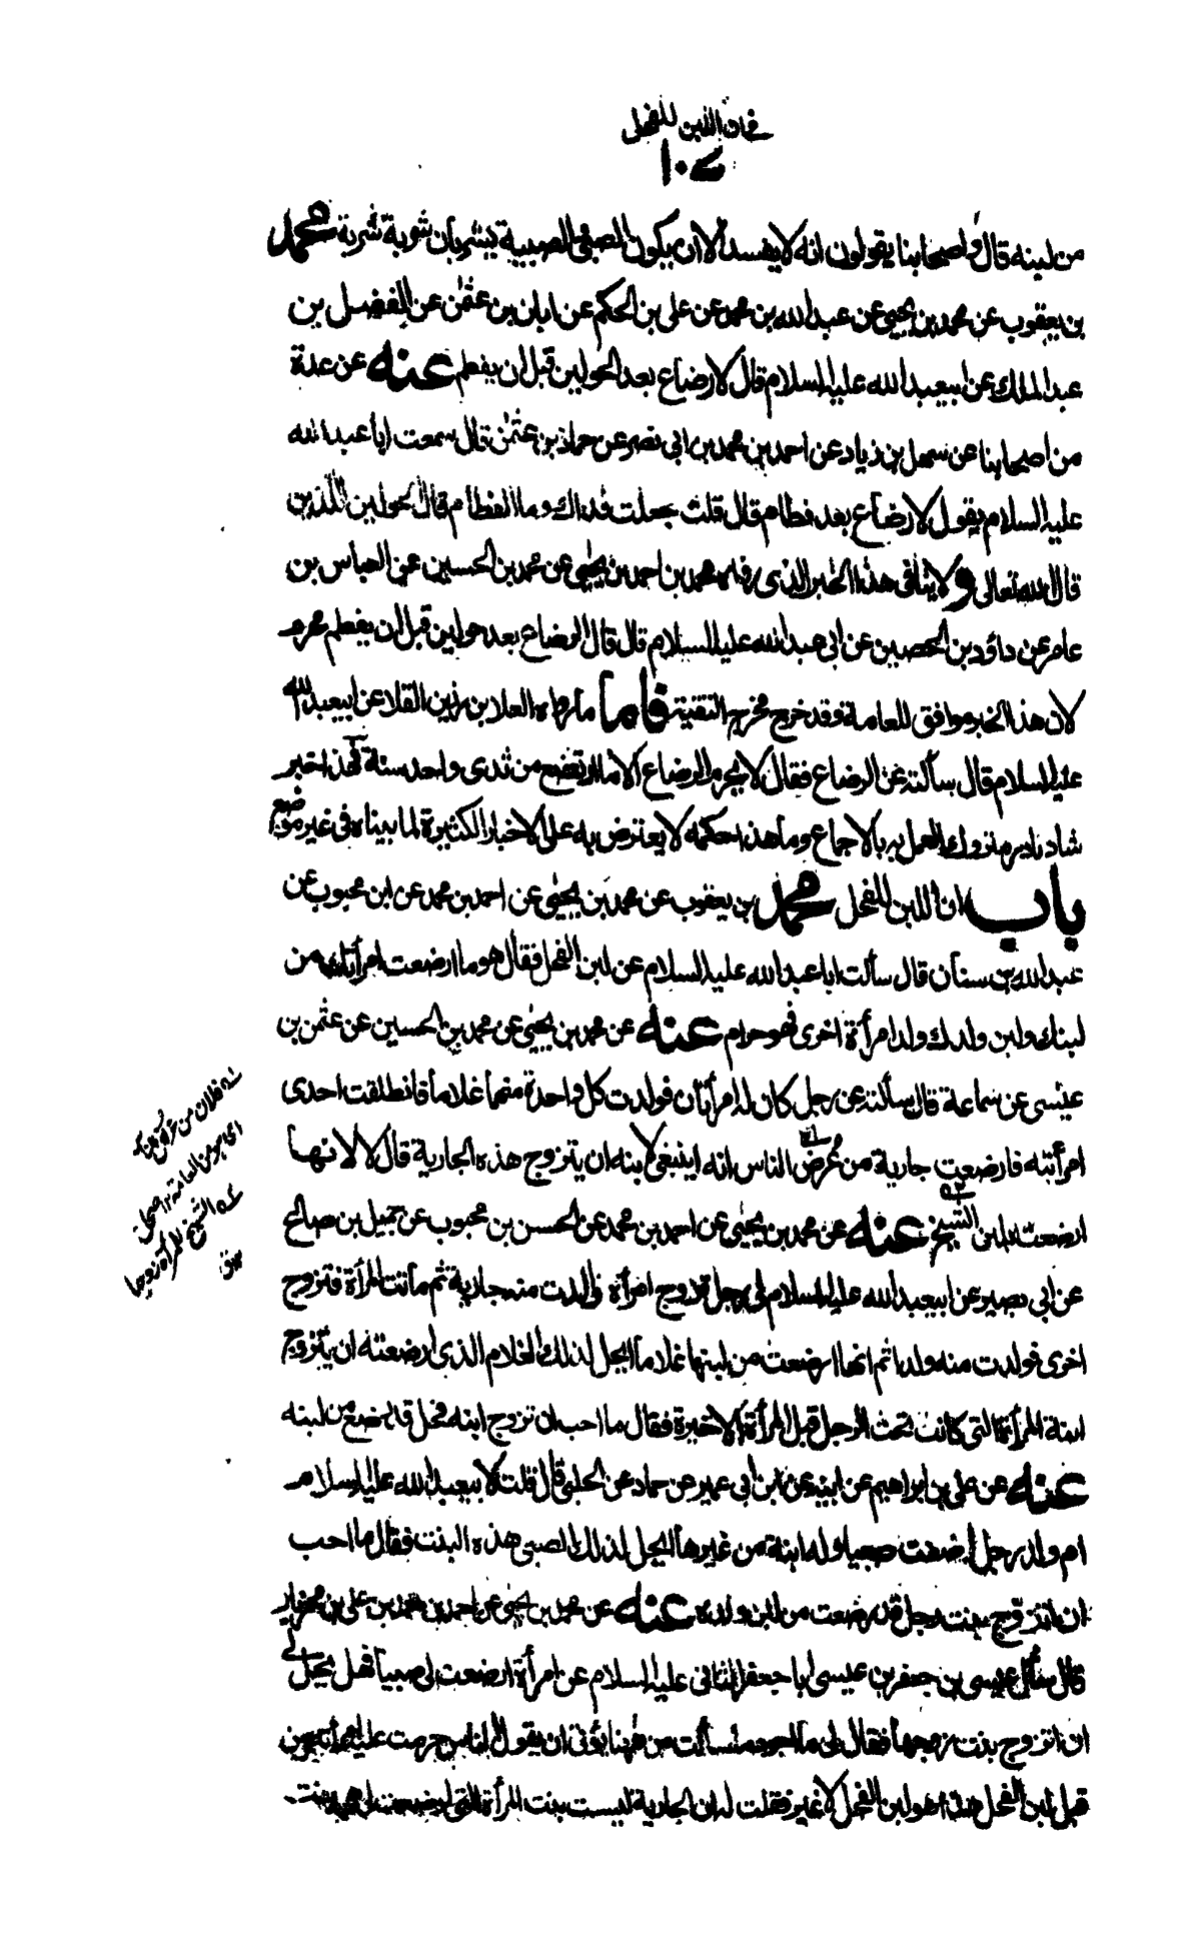 في ان اللبن للفحل
١٠٤
من لبنه قال واصحابنا يقولون انه لا يفسد الا ان يكون الصبي والصبية يشربان شربة شربة محمد
بن يعقوب عن محمد بن يحيى عن عبد الله بن محمد عن علي بن الحكم عن ابان بن عثمن عن الفضل بن
عبد الملك عن ابيعبد الله عليه السلام قال لا رضاع بعد الحولين قبل ان يفطم عنه عن عدة
من اصحابنا عن سهل بن زياد عن احمد بن محمد بن ابي نصر عن حماد بن عثمن قال سمعت ابا عبد الله
عليه السلام يقول لا رضاع بعد فطام قال قلت جعلت فداك وما الفطام قال الحولين اللذين
قال الله تعالى ولا ينافي هذا الخبر الذي رواه محمد بن احمد بن يحيى عن محمد بن الحسين عن العباس بن
عامر عن داود بن الحصين عن ابي عبد الله عليه السلام قال قال الرضاع بعد حولين قبل ان يفطم محرم
لان هذا الخبر موافق للعامة وقد خرج مخرج التقية فاما ما رواه العلا بن رزين القلا عن ابيعبد الله
عليه السلام قال سألته عن الرضاع فقال لا يحرم الرضاع الا ما ارتضع من ثدى واحد سنة فهذا خبر
شاد نادر متروك العمل به بالاجماع وما هذا حكمه لا يعترض به على الاخبار الكثيرة لما بيناه في غير موضع
باب ان اللبن للفحل محمد بن يعقوب عن محمد بن يحيى عن احمد بن محمد عن ابن محبوب عن
عبد الله بن سنان قال سألت ابا عبد الله عليه السلام عن لبن الفحل فقال هو ما ارضعت امرأتك من
لبنك ولبن ولدك ولد امرأة اخرى فهو حرام عنه عن محمد بن يحيى عن محمد بن الحسين عن عثمن بن
عيسى عن سماعة قال سألته عن رجل كان له امرأتان فولدت كل واحدة منهما غلاما فانطلقت احدى
امرأتيه فارضعت جارية من عُرض الناس انه اينبغي لابنه ان يتزوج هذه الجارية قال لا لانها
ارضعت بلبن الشيخ عنه عن محمد بن يحيى عن احمد بن محمد عن الحسن بن محبوب عن جميل بن صالح
عن ابي بصير عن ابيعبد الله عليه السلام في رجل تزوج امرأة فولدت منه جارية ثم ماتت المرأة فتزوج
اخرى فولدت منه ولدا ثم انها ارضعت من لبنها غلاما ايحل لذلك الغلام الذي ارضعته ان يتزوج
ابنة المرأة التي كانت تحت الرجل قبل المرأة الاخيرة فقال ما احب ان تزوج ابنة فحل قد رضع من لبنه
عنه عن علي بن ابراهيم عن ابيه عن ابن ابي عمير عن حماد عن الحلبي قال قلت لابيعبد الله عليه السلام
ام ولد رجل ارضعت صبيا وله ابنة من غيرها ايحل لذلك الصبي هذه البنت فقال ما احب
ان تتزوج بنت رجل قد رضعت من لبن ولده عنه عن محمد بن يحيى عن احمد بن محمد بن علي بن مهزيار
قال سأل عيسى بن جعفر بن عيسى ابا جعفر الثاني عليه السلام عن امرأة ارضعت لي صبيا فهل يحل لي
ان اتزوج بنت زوجها فقال لي ما اجود ما سألت من ههنا يؤتى ان يقول الناس حرمت عليه امرأته من
قبل لبن الفحل هذا هو لبن الفحل لا غيره فقلت له ان الجارية ليست بنت المرأة التي ارضعت لي هي بنت
فلان من
اي هو من العامة
الشيخ للمرأة زوجها